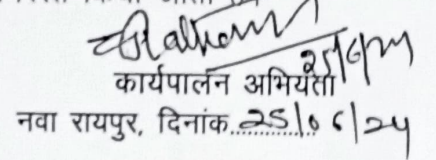 25/6/24
कार्यपालन अभियंता
नवा रायपुर, दिनांक..25/06/24